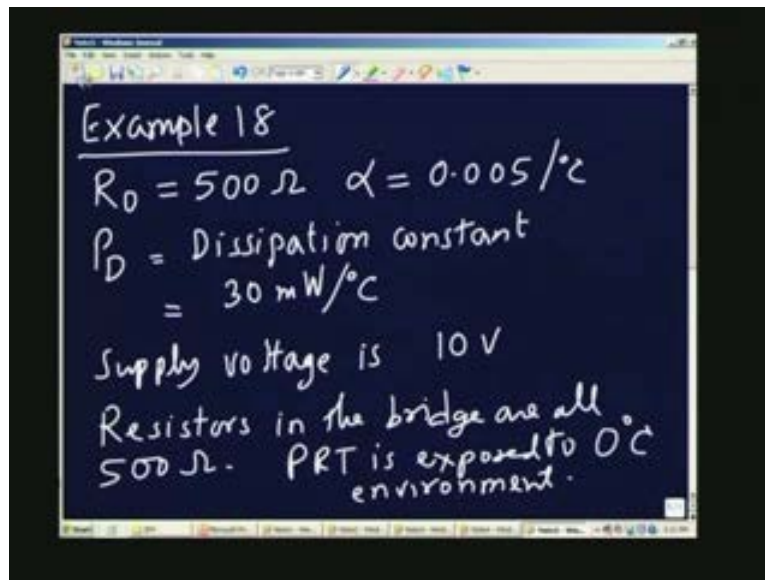 Example 18
R₀ = 500 Ω α = 0.005/°C
P_D = Dissipation constant
= 30 mW/°C
Supply voltage is 10 V
Resistors in the bridge are all
500 Ω. PRT is exposed to 0°C
environment.